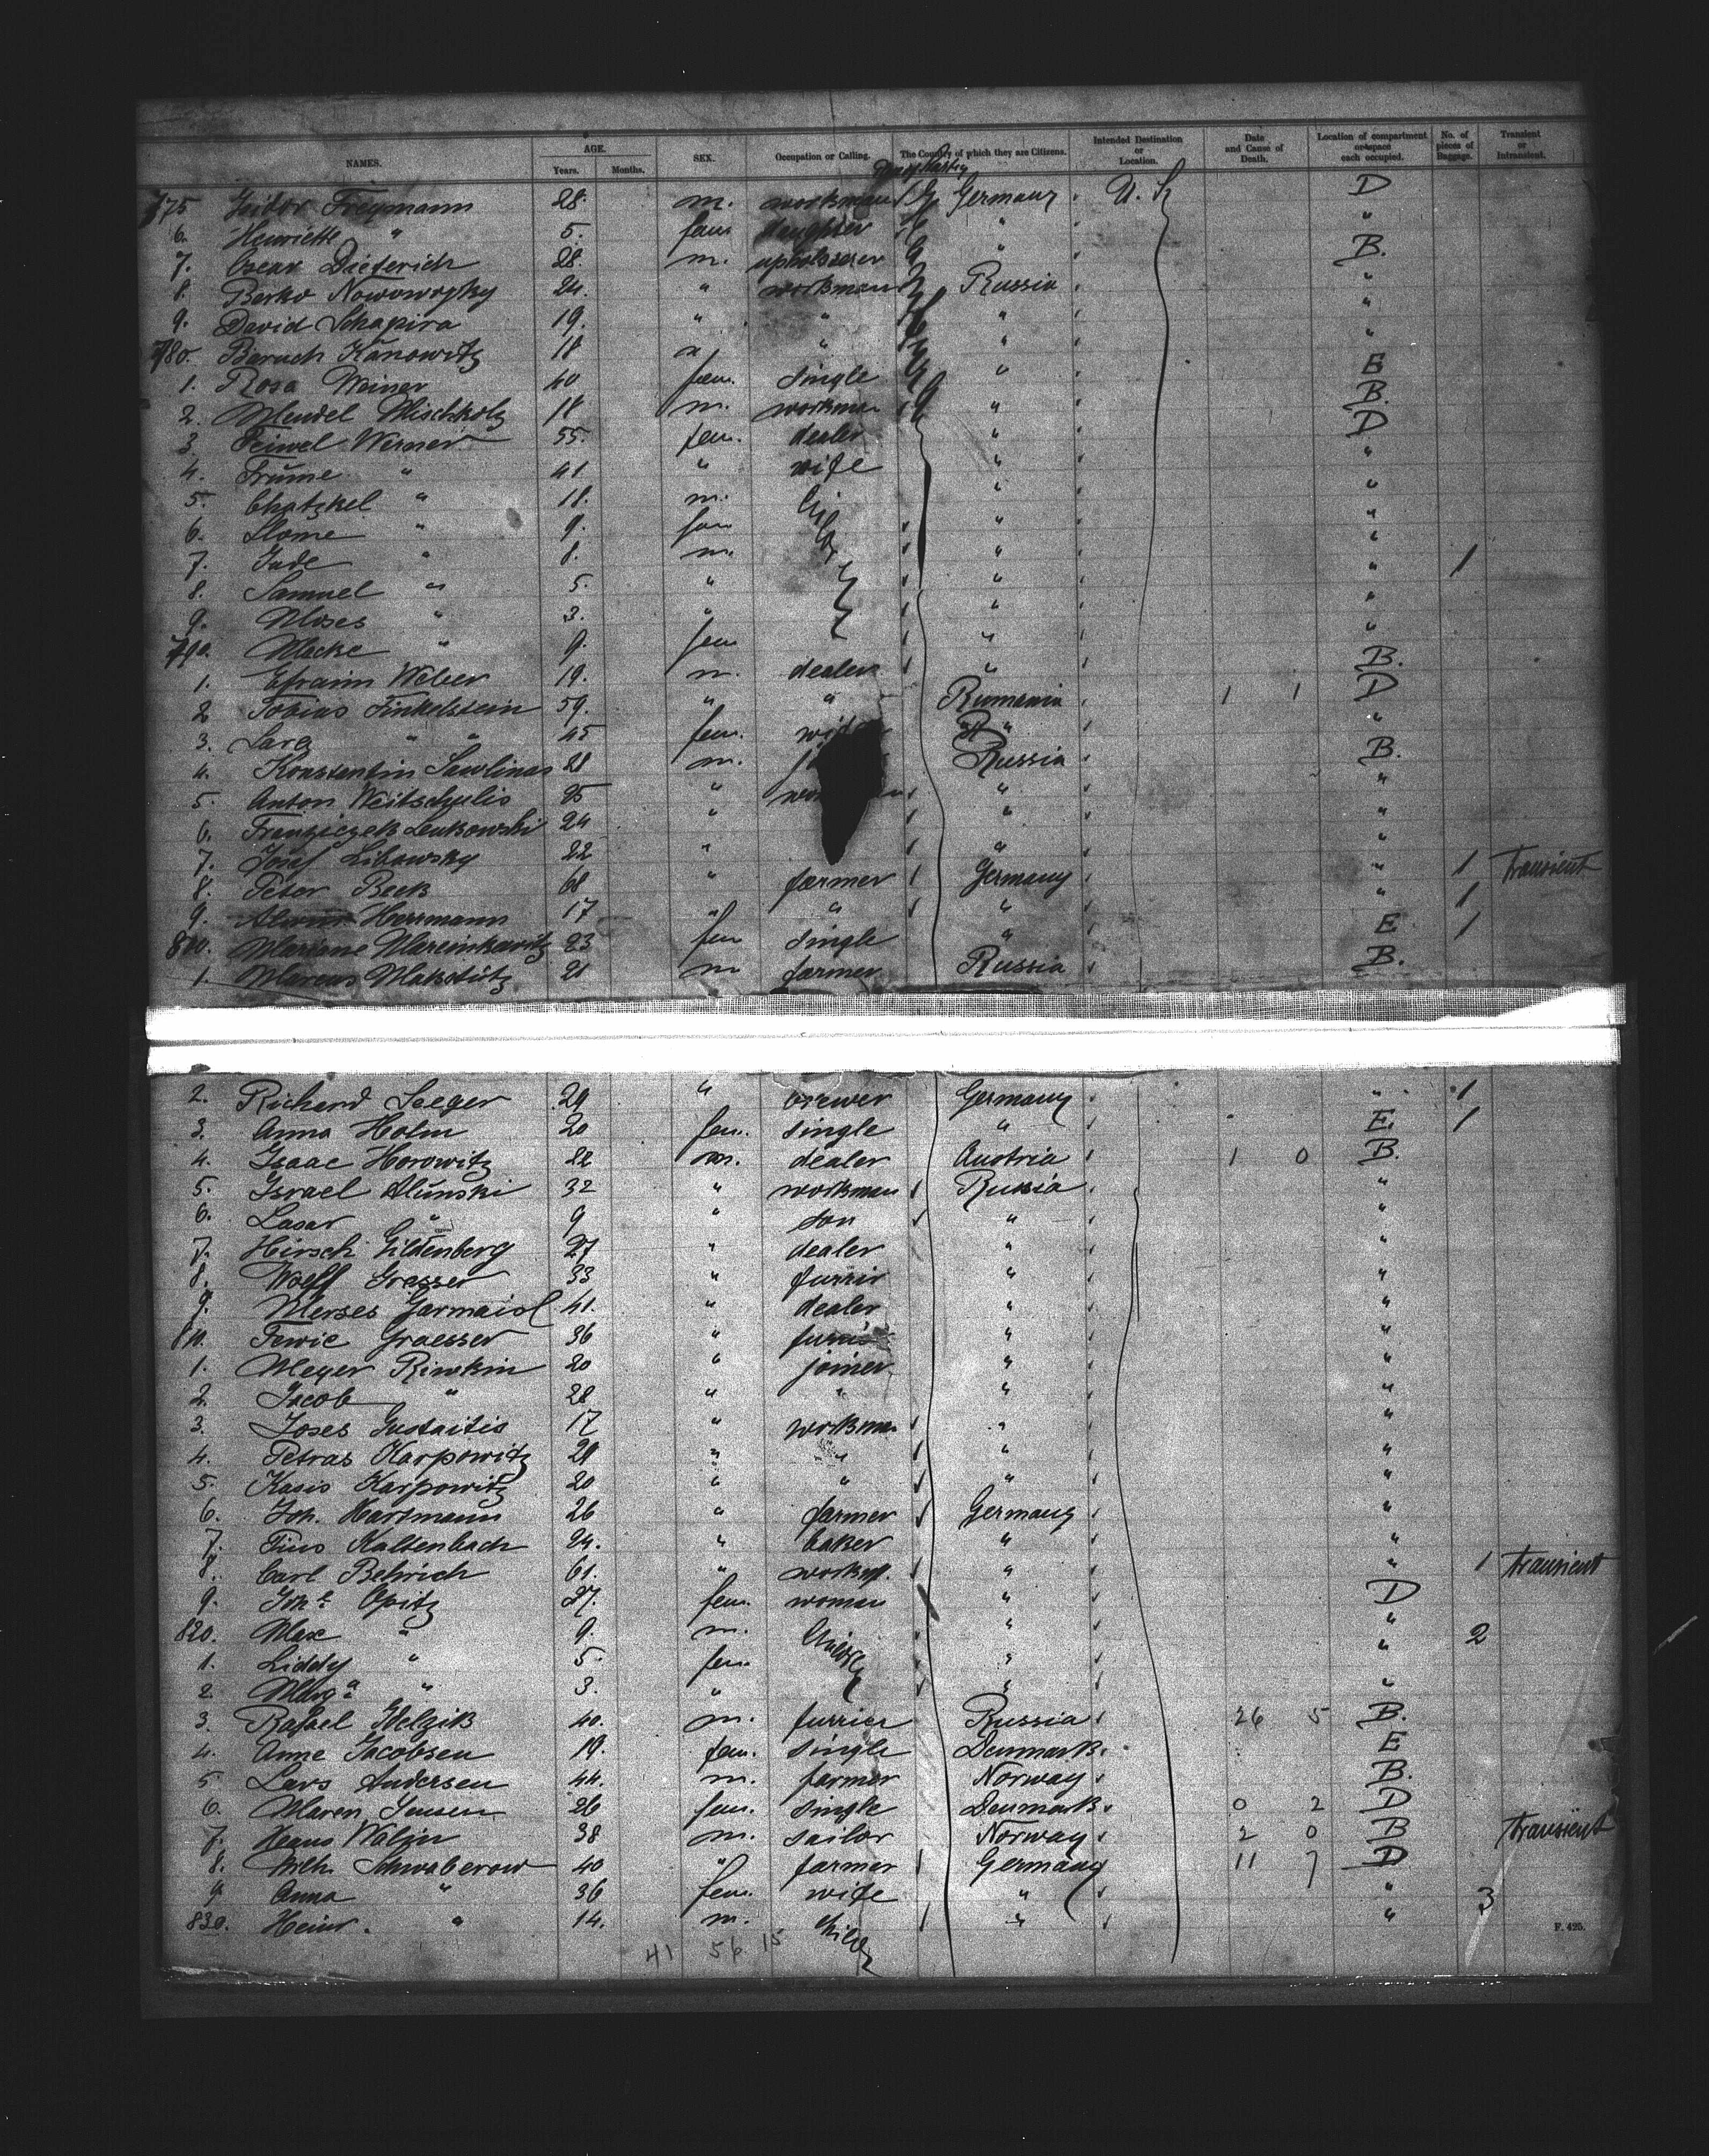 NAMES. AGE. Years. Months. SEX. Occupation or Calling. The Country of which they are Citizens. Intended Destination or Location. Date and Cause of Death. Location of compartment or space each occupied. No. of pieces of Baggage. Transient or Intransient.
775 Isidor Freymann 28. m. workman Germany U. S. D
6. Henriette " 5. fem daughter " "
7. Oscar Dieterich 28. m. upholsterer " B.
8. Berko 24. " workman Russia "
9. David Schapira 19. " " " "
780. Baruch Kanowitz 18 " " " "
1. Rosa Weiner 40 fem. single " E
2. Mendel Mischkolz 18 m. workman " B.
3. Feiwel Werner 55. fem. dealer " D
4. Frŭme " 41 " wife " "
5. Chatzkel " 18. m. " "
6. Slome " 9. " "
7. Jude " 8. m. " " 1
8. Samuel " 5. " " "
9. Moses " 3. " " "
790. Macke " 9. fem " "
1. Efraim Weber 19. m. dealer " B.
2 Tobias Finkelstein 59. " " Rumania 1 1 D
3. Sara " " 45 fem. " "
4. Konstentin 28 m. Russia B.
5. Anton Weitschulis 25 " " "
6. Franziczek Lenkowski 24 " " "
7. Josef Libowsky 22 " " "
8. Peter Beck 68 " farmer Germany " 1 Transient
9. Herrmann 17 " " " " 1
800. Mariane Mareinkawitz 23 fem single " E 1
1. Marcus Makstŭtz 21 m farmer Russia B.
2. Richard Seeger 29 " brewer Germany " 1
3. Anna Holm 20 fem. single " E. 1
4. Isaac Horowitz 22 m. dealer Austria 1 0 B.
5. Israel Alŭnski 32 " workman Russia "
6. Lasar " 9 " son " "
7. Hirsch Gildenberg 27 " dealer " "
8. Wolff Gresser 33 " furrir " "
9. Merses Garmaisl 41. " dealer " "
810. Tewic Graesser 36 " " "
1. Meyer Riwkin 20 " joiner " "
2. Jacob " 28 " " " "
3. Joses Gustaitis 17 " workman " "
4. Petras Karpowitz 29 " " " "
5. Kasis Karpowitz 20 " " " "
6. Joh. Hartmann 26 " farmer Germany "
7. Kaltenbach 24. " baker " "
8. Carl Behrich 61. " workm. " " 1 Transient
9. Opitz 27. fem. woman " D
820. Max " 9. m. " " 2
1. Liddy " 5. fem. " "
2. Marg.a " 3. " " "
3. Rafael 40. m. furrier Russia 26 5 B.
4. Anne Jacobsen 19. fem. single Denmark. E
5. Lars Andersen 44. m. farmer Norway B.
6. Maren Jensen 26 fem. single Denmark 0 2 D
7. 38 m. sailor Norway 2 0 B Transient
8. Wilh. Schwaberow 40 " farmer Germany 11 7 D
9 Anna " 36 fem. wife " " 3
830. Heinr. " 14. m. " "
41 56 15
F. 425.